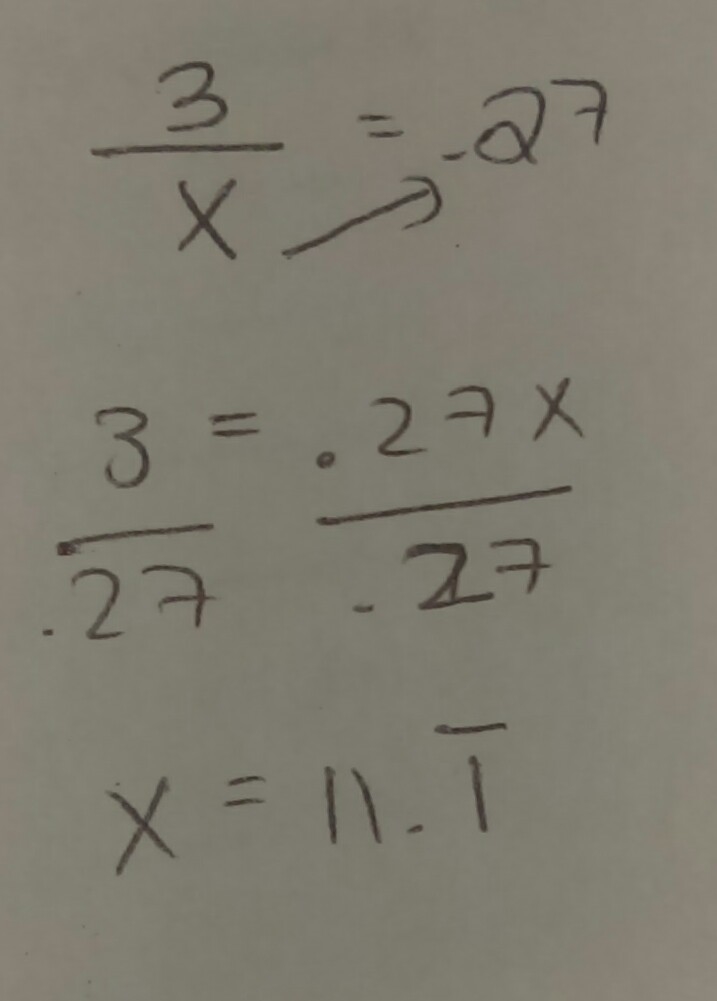 3/x = .27
3 = .27x
.27 .27
x = 11.1̅